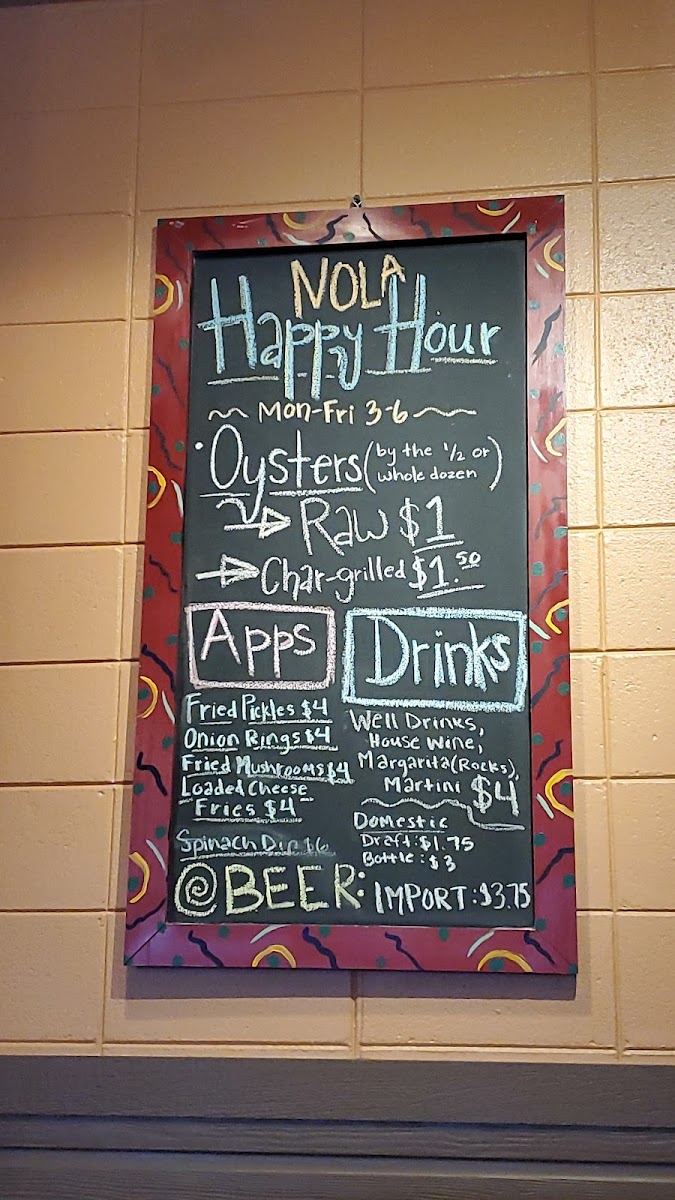 NOLA
Happy Hour
Mon-Fri 3-6
• Oysters (by the 1/2 or
whole dozen)
Raw $1
Char-grilled $1.50
Apps
Fried Pickles $4
Onion Rings $4
Fried Mushrooms $4
Loaded Cheese
Fries $4
Spinach Dip $6
Drinks
Well Drinks,
House Wine,
Margarita (Rocks),
Martini $4
Domestic
Draft: $1.75
Bottle: $3
BEER:
IMPORT: $3.75